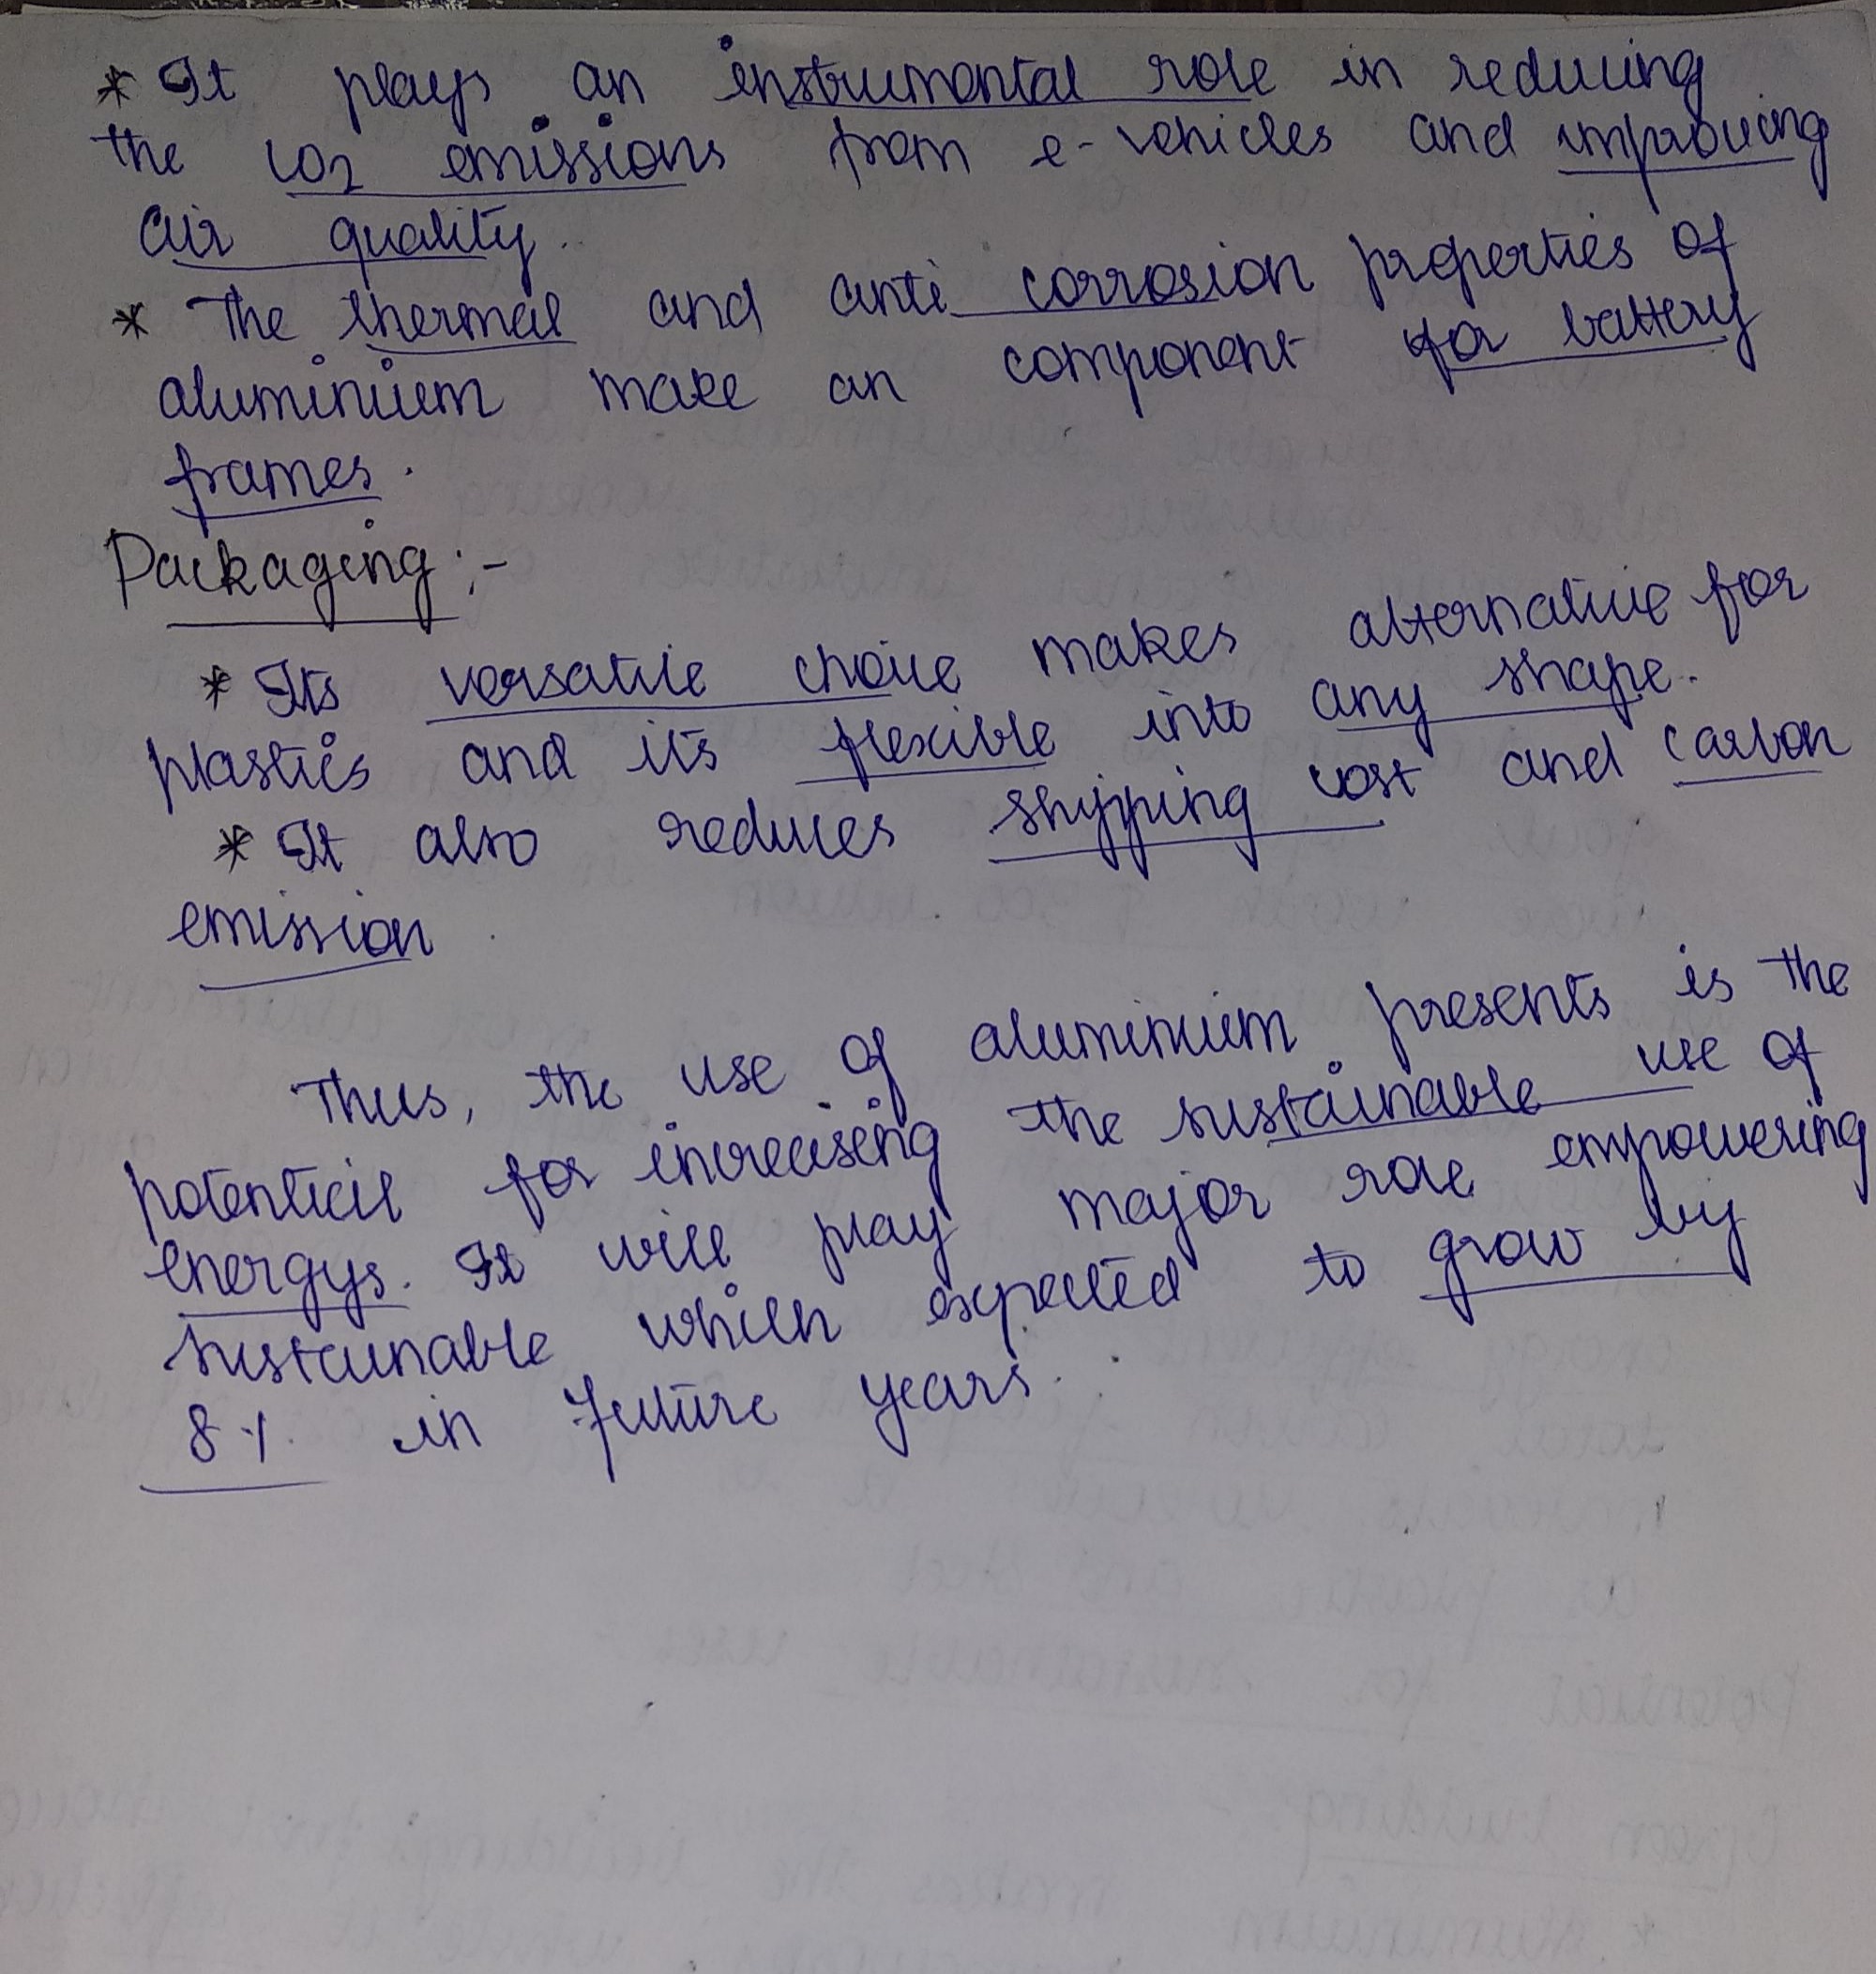 * It plays an instrumental role in reducing
the CO2 emissions from e-vehicles and improving
air quality.
* The thermal and anti corrosion properties of
aluminium make an component for battery
frames.
Packaging :-
* Its versatile choice makes alternative for
plastics and its flexible into any shape.
* It also reduces shipping cost and carbon
emission.
Thus, the use of aluminium presents is the
potential for increasing the sustainable use of
energys. It will play major role empowering
sustainable which expected to grow by
8% in future years.